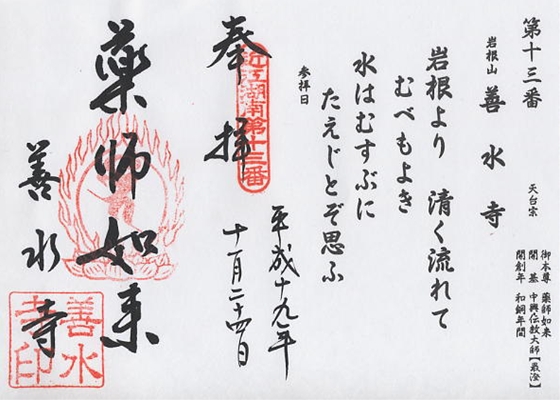 第十三番
岩根山 善水寺 天台宗
御本尊 薬師如来
開基 中興伝教大師【最澄】
開創年 和銅年間
岩根より 清く流れて
むべもよき
水はむすぶに
たえじとぞ思ふ
参拝日
奉拝
近江湖南第十三番
平成十九年
十一月二十四日
藥師如来
善水寺
善水
寺印